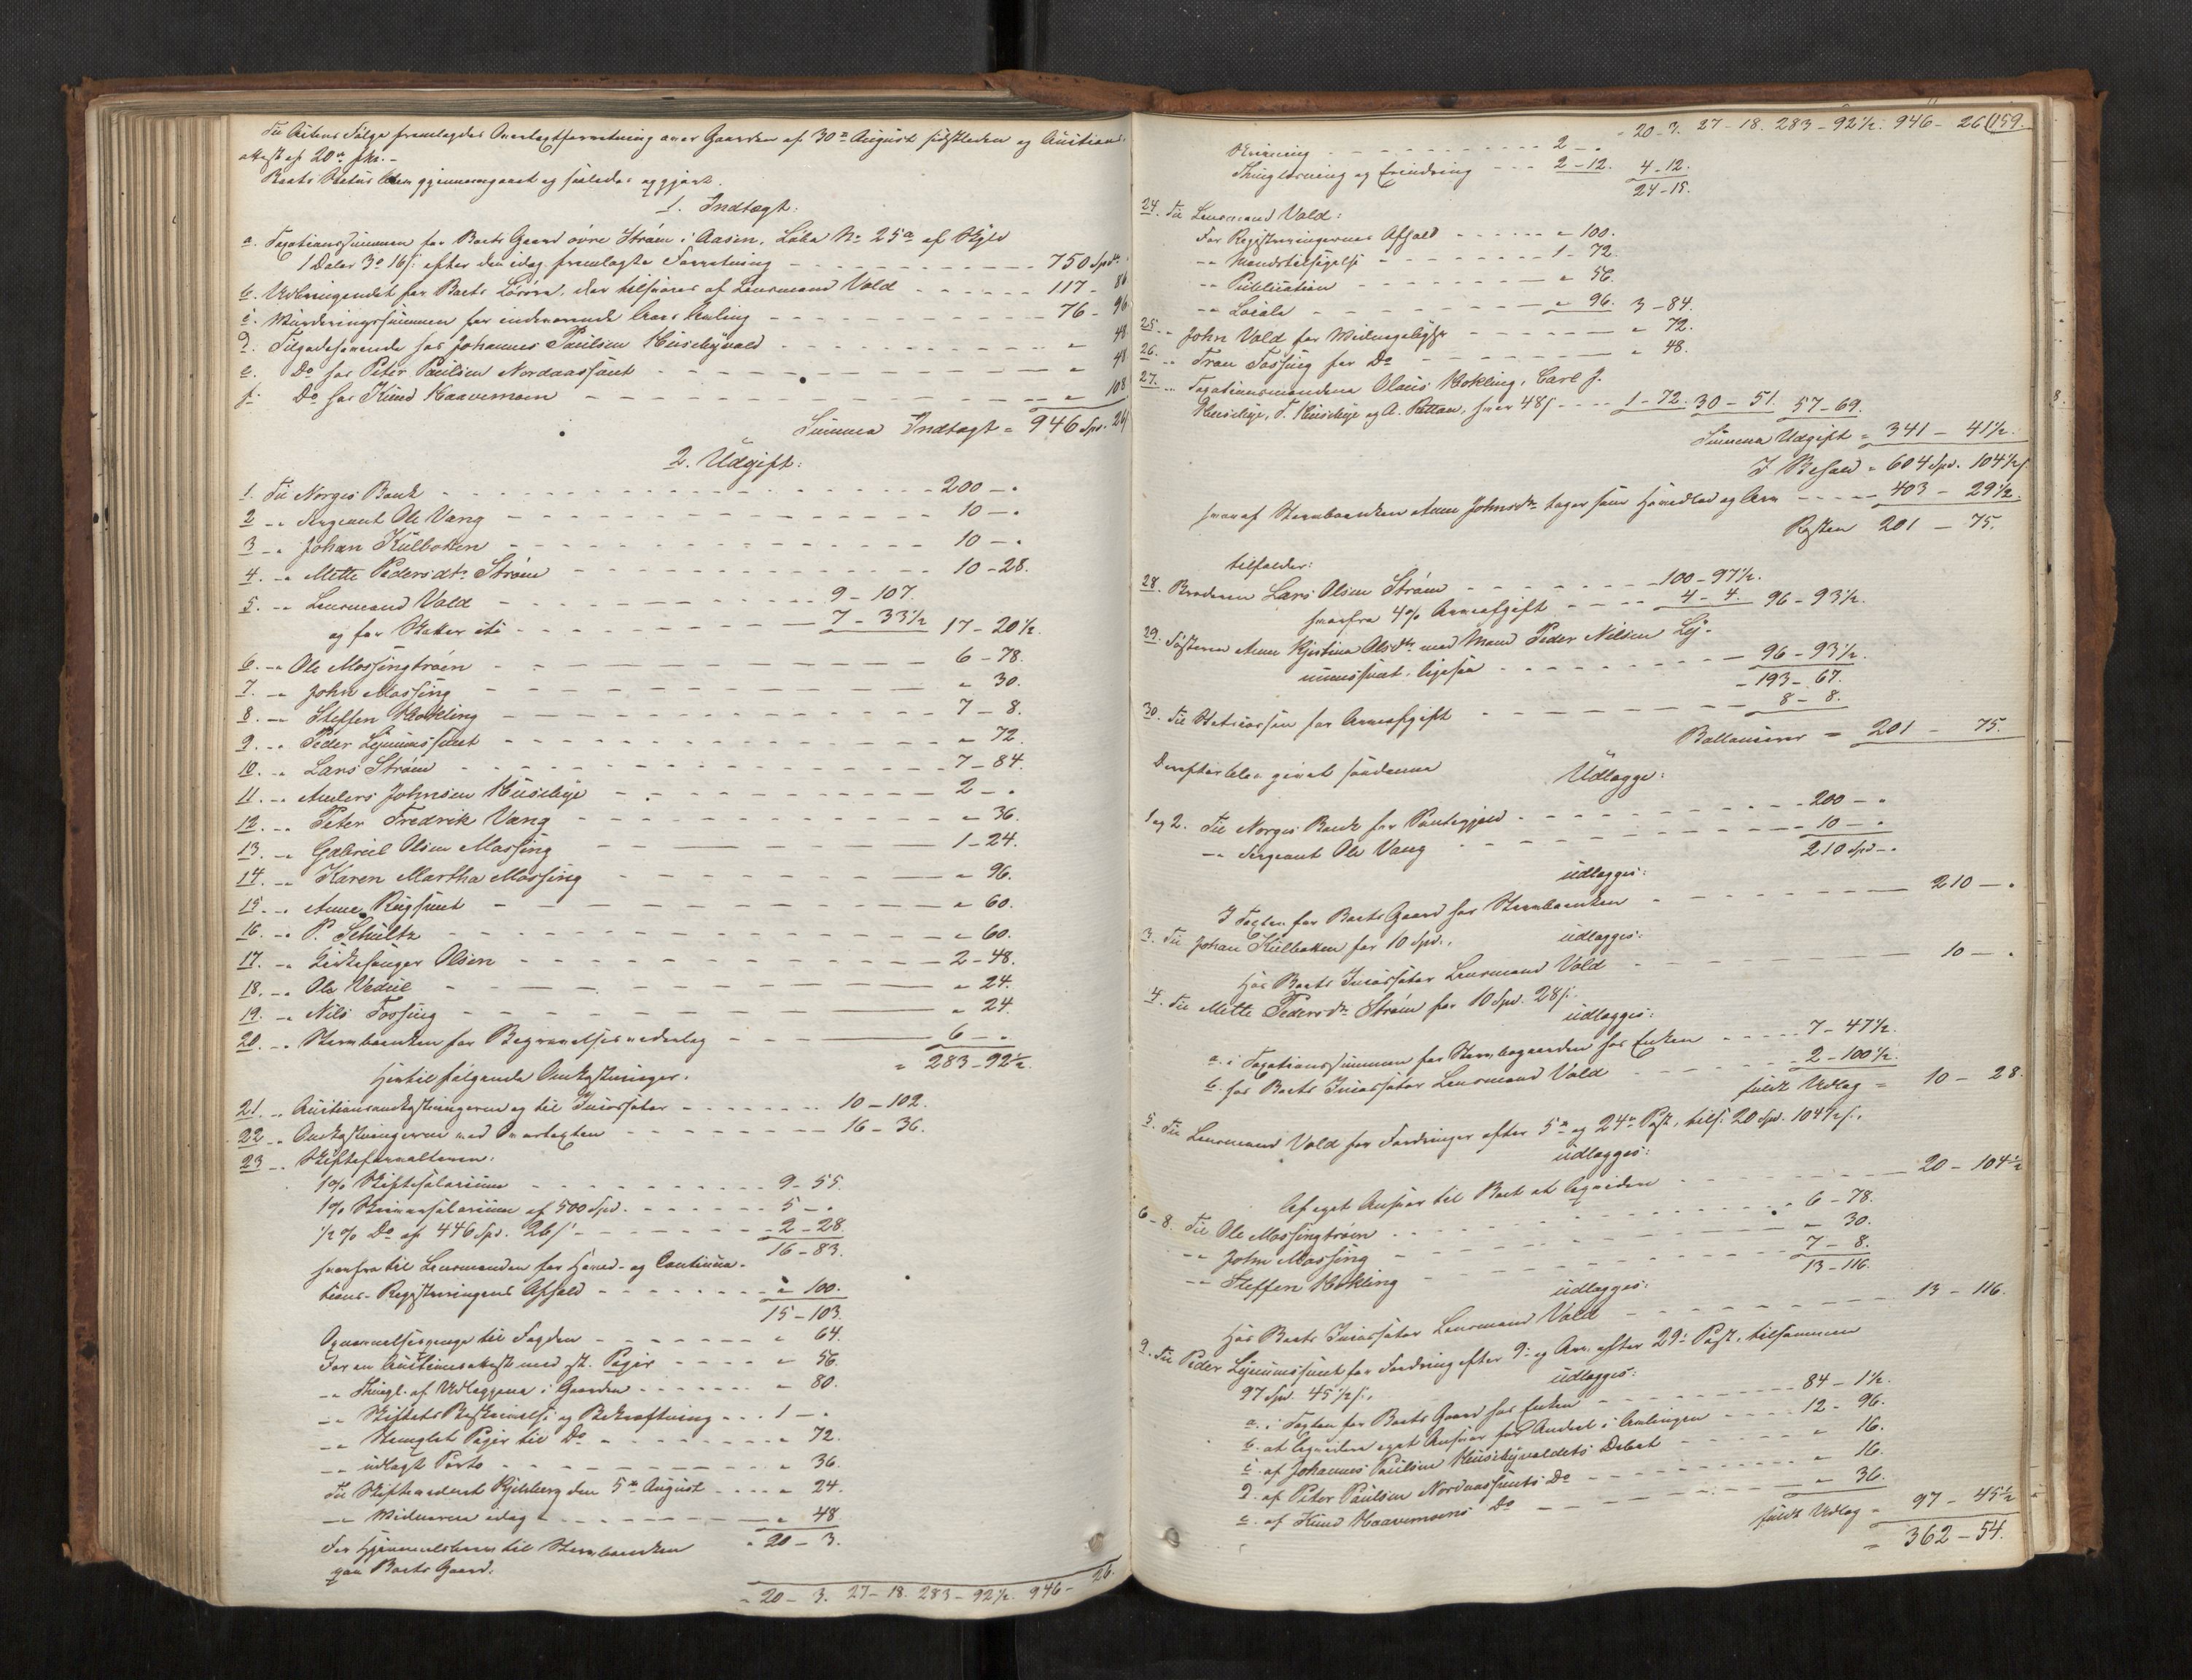 Til Actens Følge fremlagdes Overtagtforretning over Gaarden af 30te August sidstleden og Auctions-
attest af 20de f.M. -
Boets Status blev gjennemgaaet og saaledes opgjort.
1. Indtægt:
a. Taxationssummen for Boets Gaard øvre Strøm i Aasen, Løbe No 25a af Skyld
1 Daler 3o 16 s: efter den idag fremlagte Forretning - - - 750 Spd. "
b. Udbringendet for Boets Løsøre, der tilsvares af Lensmand Vold - - - 117 - 86
c. Vurderingssummen for indeværende Aars Avling - - - 76 - 96
d. Tilgodehavende hos Johannes Paulsen Husebyvald - - - " 48
e. Do hos Peter Paulsen Nordaasfunt - - - " 48
f. Do hos Knud Haavemoen - - - " 108
Summa Indtægt = 946 Spd. 26
2. Udgift:
1. Til Norges Bank - - - 200 - "
2 - " Sergeant Ole Vang - - - 10 - "
3 - " Johan Kulbotten - - - 10 - "
4. - " Mette Pedersdtr Strøm - - - 10 - 28.
5. - " Lensmand Vold - - - 9 - 107.
og for Skatter etc - - - 7 - 33 1/2 17 - 20 1/2.
6. - " Ole Mossingtrøen - - - 6 - 78.
7. - " John Mossing - - - " 30.
8. - " Steffen Hokling - - - 7 - 8.
9. - " Peder Lynumsfunt - - - " 72.
10. - " Lars Strøm - - - 7 - 84.
11. - " Anders Johnsen Husebye - - - 2 - "
12. - " Peter Fredrik Vang - - - " 36.
13. - " Gabriel Olsen Mossing - - - 1 - 24.
14. - " Karen Martha Mossing - - - " 96.
15. - " Anne Rugfunt - - - " 60.
16. - " P. Schultz - - - " 60.
17. - " Kirkesanger Olsen - - - 2 - 48.
18. - " Ole Vedul - - - " 24.
19. - " Nils Fossing - - - " 24.
20. - " Stervboenken for Begravelsesvederlag - - - 6 - "
= 283 - 92 1/2.
Hertil følgende Omkostninger.
21. - " Auctionsomkostningerne og til Incassator - - - 10 - 102.
22. - " Omkostningerne ved Overtagten - - - 16 - 36.
23 - " Skifteforvalteren:
1 % Skiftesalarium - - - 9 - 55.
1 % Skriversalarium af 500 Spd. - - - 5 - "
1/2 % Do af 446 Spd. 26 s - - - 2 - 28
16 - 83.
hvorfra til Lensmanden for Hoved- og Continua-
tions-Registreringens Afhold - - - " 100.
15 - 103.
Opnævnelsespenge til Fogden - - - " 64.
For en Auctionsattest med st. Papir - - - " 56.
- " Thingl. af Udlæggene i Gaarden - - - " 80.
- " Skiftets Beskrivelse og Bekræftning - - - 1 - "
- " Stemplet Papir til Do - - - " 72.
- " udlagt Porto - - - " 36.
Til Skiftevidnet Kjelsberg den 5te August - - - " 24.
- " Vidnerne idag - - - " 48.
" 20 - 3.
For Hjemmelsbrev til Stervboenken
paa Boets Gaard.
" 20 - 3. 27 - 18. 283 - 92 1/2. 946 - 26.
159.
" 20 - 3. 27 - 18. 283 - 92 1/2. 946 - 26
Skrivning - - - 2 - "
Thinglæsning og Erindring - - - 2 - 12. 4 - 12.
24 - 15.
24. Til Lensmand Vold:
For Registreringernes Afhold - - - " 100.
- " Mandstilsigelse - - - 1 - 72.
- " Publication - - - " 56.
- " Locale - - - " 96. 3 - 84.
25. - " John Vold for Vidnepligt - - - " 72.
26. - " Iver Fossing for Do - - - " 48.
27. - " Taxationsmændene Olaus Hokling, Carl J.
Husebye, T. Husebye og A. Rattan, hver 48 s - - - 1 - 72. 30 - 51. 57 - 69.
Summa Udgift = 341 - 41 1/2.
I Behold = 604 Spd. 104 1/2 s
hvoraf Stervboenken Anne Johnsdtr tager som Hovedlod og Arv - - - 403 - 29 1/2.
Resten 201 - 75.
tilfalder:
28. Broderen Lars Olsen Strøm - - - 100 - 97 1/2.
hvorfra 4 % Arveafgift - - - 4 - 4. 96 - 93 1/2.
29. Søsteren Anne Kjerstina Olsdtr med Mand Peder Nilsen Ly-
numsfunt, ligesaa - - - 96 - 93 1/2.
- 193 - 67.
30. Til Statscassen for Arveafgift - - - 8 - 8.
Ballancerer = 201 - 75.
Derefter blev givet saadanne
Udlægge:
1 og 2. Til Norges Bank for Pantegjæld - - - 200 - "
- " Sergeant Ole Vang - - - 10 - "
210 Spd - "
udlægges:
I Taxten for Boets Gaard hos Stervboenken - - - 210 - "
3. Til Johan Kulbotten for 10 Spd.,
udlægges:
Hos Boets Incassator Lensmand Vold - - - 10 - "
4. Til Mette Pedersdtr Strøm for 10 Spd. 28 s.
udlægges:
a. i Taxationssummen for Stervbogaarden hos Enken - - - 7 - 47 1/2.
b. hos Boets Incassator Lensmand Vold - - - 2 - 100 1/2.
fuldt Udlæg = 10 - 28.
5. Til Lensmand Vold for Fordringer efter 5te og 24de Post, tils. 20 Spd. 104 1/2 s.,
udlægges:
Af eget Ansvar til Boet at liqvidere - - - 20 - 104 1/2
6 - 8. Til Ole Mossingtrøen - - - 6 - 78.
- " John Mossing - - - " 30.
- " Steffen Hokling - - - 7 - 8.
13 - 116.
udlægges:
Hos Boets Incassator Lensmand Vold - - - 13 - 116.
9. Til Peder Lynumsfunt for Fordring efter 9de og Arv efter 29de Post, tilsammen
97 Spd. 45 1/2 s.,
udlægges:
a. i Taxten for Boets Gaard hos Enken - - - 84 - 1 1/2.
b. at liqvidere eget Ansvar for Andeel i Avlingen - - - 12 - 96.
c. af Johannes Paulsen Husebyvaldets Debet - - - " 16.
d. af Peter Paulsen Nordaasfunts Do - - - " 16.
e. af Knud Haavemoens Do - - - " 36.
fuldt Udlæg = 97 - 45 1/2
= 362 - 54.